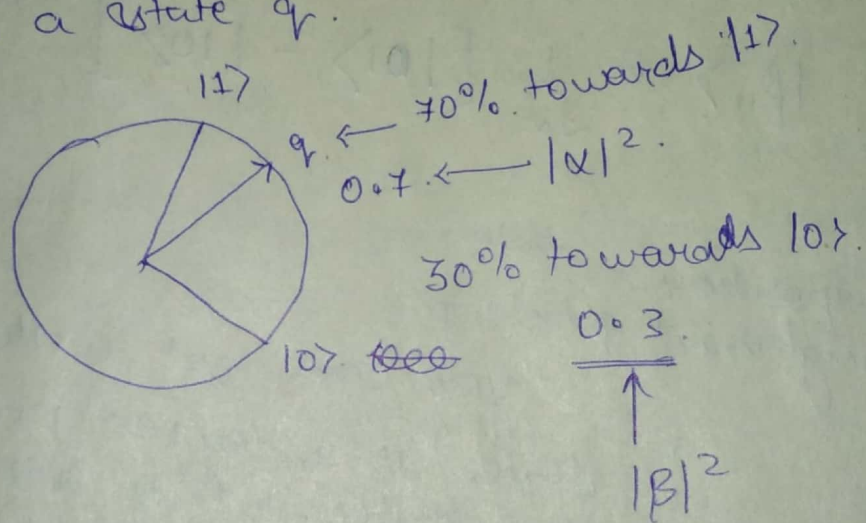 a state q.
|1>
q. ← 70% towards |1>.
0.7. ← |α|².
30% towards |0>.
|0>
0.3.
↑
|β|²